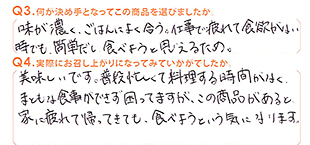 Q3.何が決め手となってこの商品を選びましたか。
味が濃く、ごはんによく合う。仕事で疲れて食欲がない
時でも、簡単だし食べようと思えるため。
Q4.実際にお召し上がりになってみていかがでしたか。
美味しいです。普段忙しくて料理する時間がなく、
まともな食事ができず困ってますが、この商品があると
家に疲れて帰ってきても、食べようという気になります。